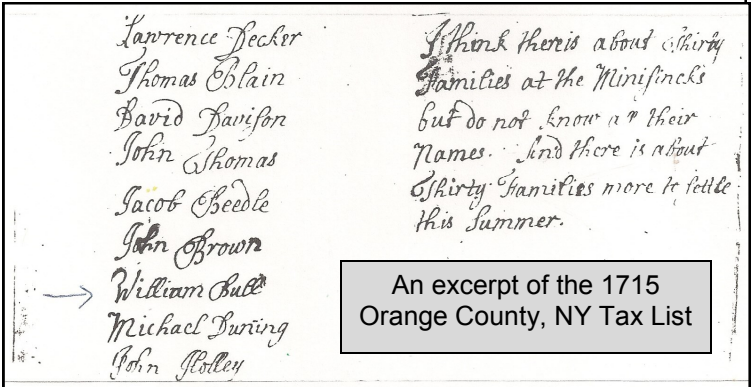 Lawrence Decker
Thomas Blain
David Davison
John Thomas
Jacob Beedle
John Brown
William Bull
Michael Duning
John Holley
I think thereis about Thirty
Families at the Minisincks
but do not know their
Names. And there is about
Thirty Families more to settle
this Summer.
An excerpt of the 1715
Orange County, NY Tax List